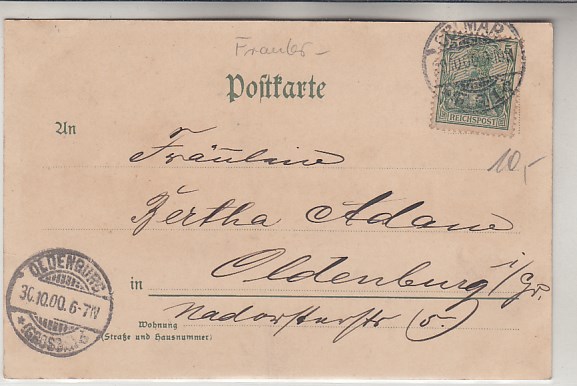 Frankr-
COLMAR
REICHSPOST
5
Postkarte
An
10,-
Fräulein
Bertha Adam
in Oldenburg i/Gr.
Nadorsterstr 5.
Wohnung
(Straße und Hausnummer)
OLDENBURG
30.10.00.6-7N
*(GROSSH.)*